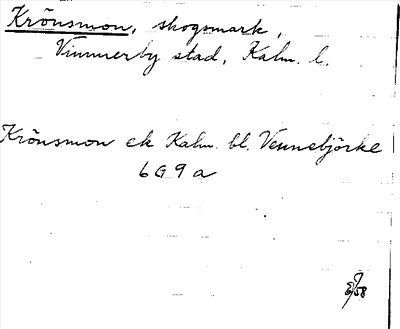 Krönsmon, skogsmark,
Vimmerby stad, Kalm. l.
Krönsmon ek Kalm. bl. Vennebjörke
6G9a